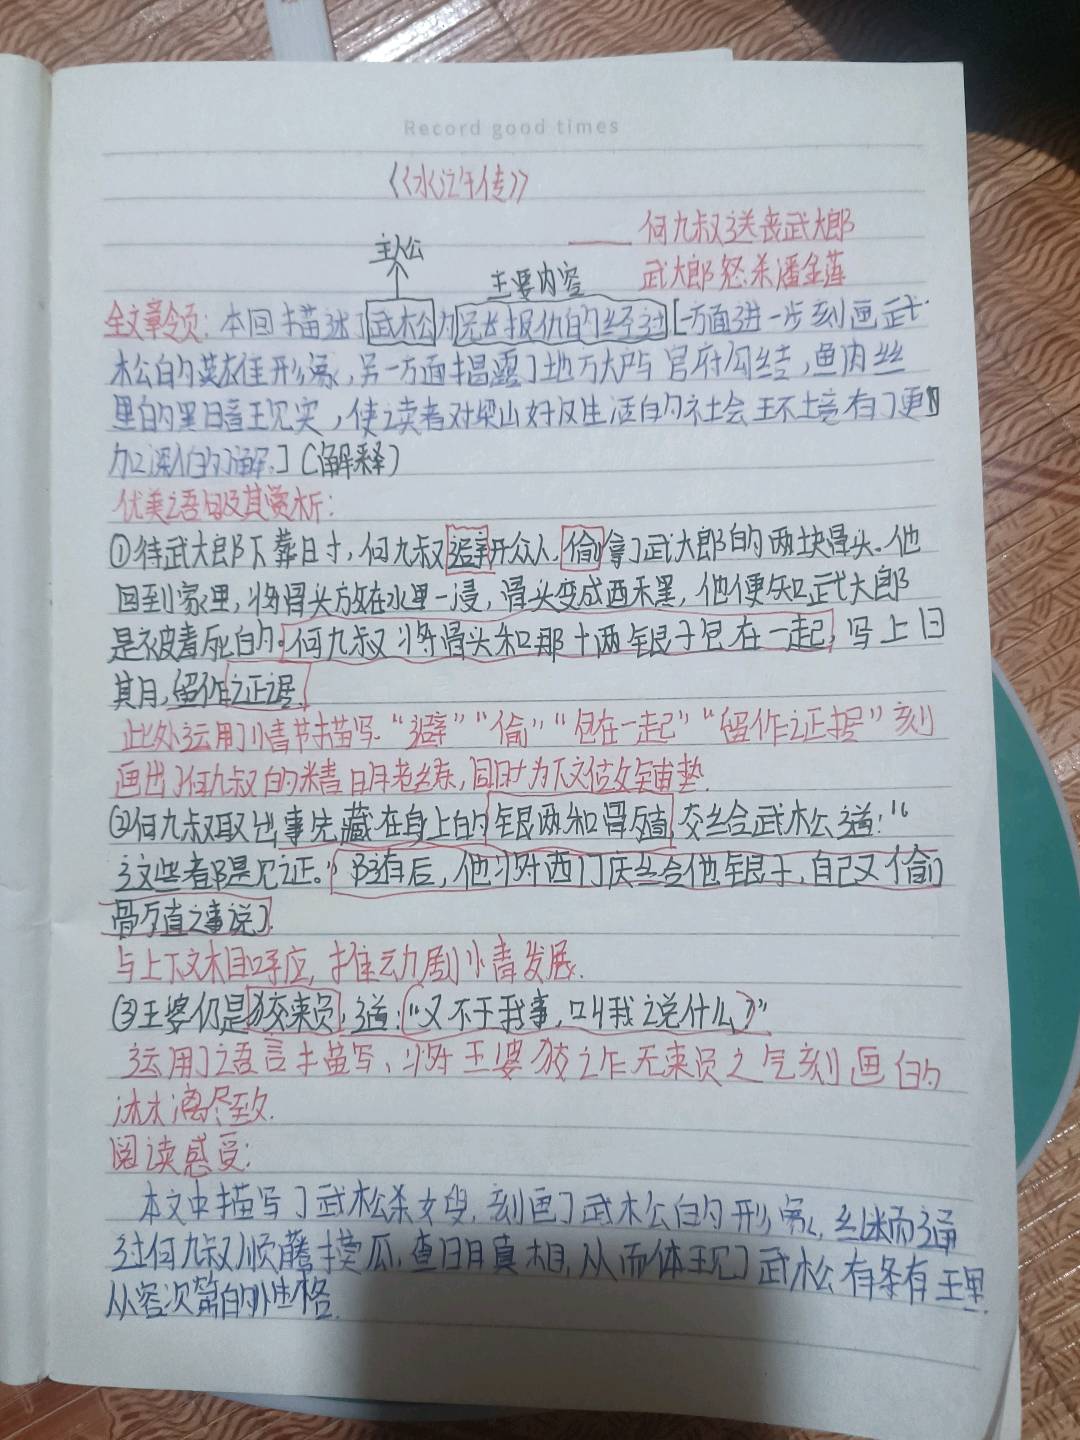 Record good times
《水浒传》
主人公
——何九叔送丧武大郎
主要内容
武大郎怒杀潘金莲
全文章领：本回描述了武松为兄长报仇的经过[一方面进一步刻画武
松的英雄形象，另一方面揭露了地方大户与官府勾结，鱼肉
的黑暗现实，使读者对梁山好汉生活的社会环境有了更
加深入的了解。](解释)
优美语句及其赏析：
①待武大郎下葬时，何九叔避开众人，偷拿了武大郎的两块骨头。他
回到家里，将骨头放在水里一浸，骨头变成酥黑，他便知武大郎
是被毒死的。何九叔将骨头和那十两银子包在一起，写上日
其月，留作证据。
此处运用了情节描写"避""偷""包在一起""留作证据"刻
画出了何九叔的精明老练，同时为下文做铺垫。
②何九叔取出事先藏在身上的银两和骨殖交给武松道："
这些都是见证。"随后，他将西门庆给他银子，自己又偷
骨殖之事说了。
与上下文相呼应，推动剧情发展。
③王婆仍是狡赖，道："又不干我事，叫我说什么？"
运用了语言描写、将王婆狡诈无赖之气刻画的
淋漓尽致。
阅读感受：
本文中描写了武松杀嫂，刻画了武松的形象，继而通
过何九叔顺藤摸瓜，查明真相，从而体现了武松有条有理
从容次第的性格。